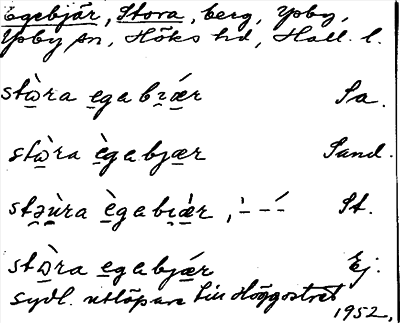 Egebjär, Stora, berg, Ysby,
Ysby sn, Höks hd, Hall. l.
stὼra egabıǽr Sa.
stὼra ègabjær Sund.
stəùra ègabıær, ̀ – – ́ St.
stὼra egabjǽr Ej.
sydl. utlöpare till Höggostret
1952.